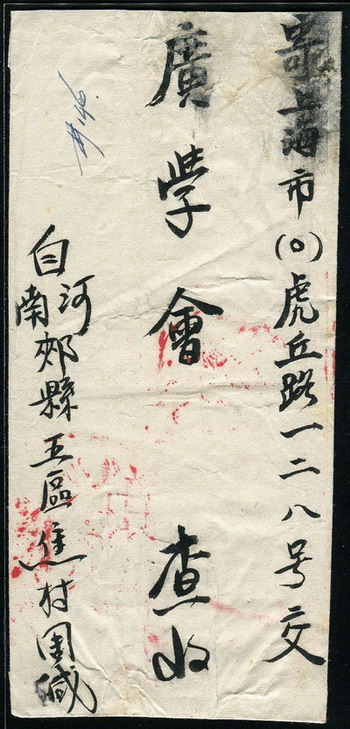 寄上海市(0)虎丘路一二八号交
廣學會 查收
自河南郟縣五區村緘